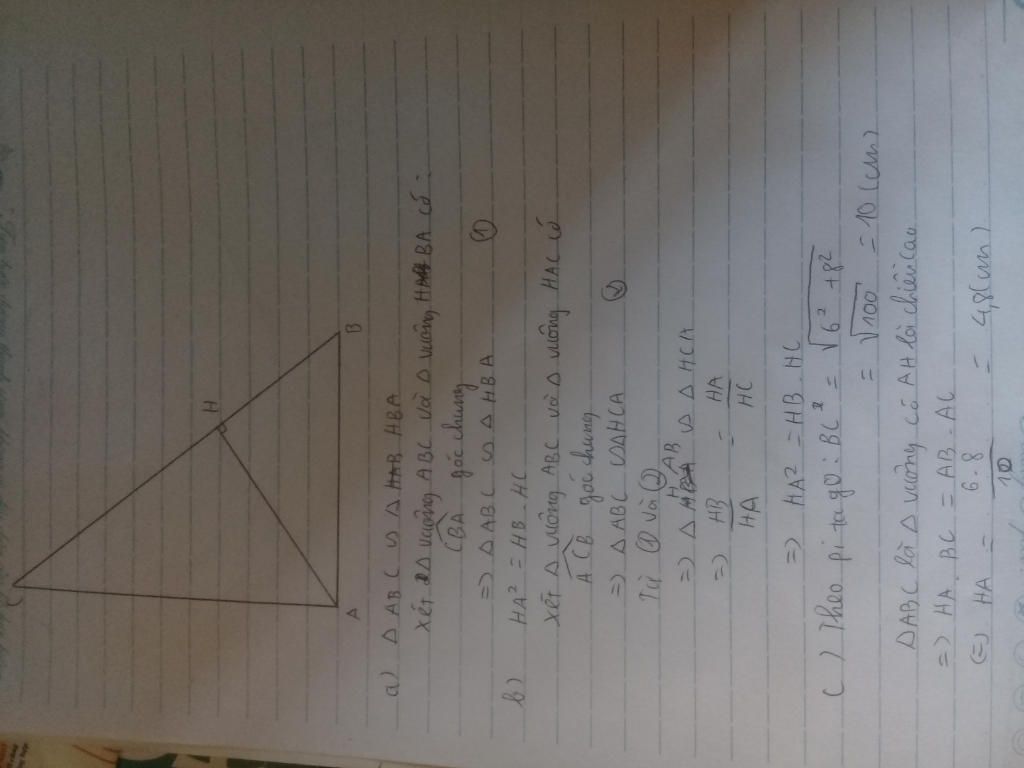 C
H
A
B
a) Δ ABC ∽ Δ HBA
Xét Δ vuông ABC và Δ vuông HBA có:
CBA góc chung
=> Δ ABC ∽ Δ HBA ①
b) HA² = HB . HC
Xét Δ vuông ABC và Δ vuông HAC có
ACB góc chung
=> Δ ABC ∽ Δ HCA ②
Từ ① và ②
=> Δ HAB ∽ Δ HCA
=> HB/HA = HA/HC
=> HA² = HB . HC
c) Theo pi ta go: BC² = √6² + 8²
= √100 = 10 (cm)
ΔABC là Δ vuông có AH là chiều cao
=> HA . BC = AB . AC
(=) HA = 6.8/10 = 4,8 (cm)